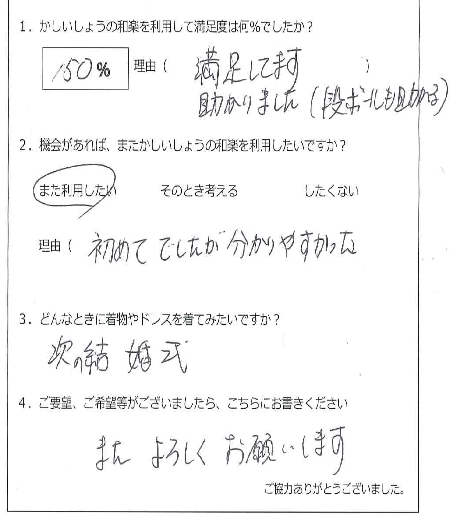 1．かしいしょうの和楽を利用して満足度は何%でしたか？
150% 理由（ 満足してます ）
助かりました（段ボールも助かる）
2．機会があれば、またかしいしょうの和楽を利用したいですか？
また利用したい そのとき考える したくない
理由（ 初めてでしたが分かりやすかった
3．どんなときに着物やドレスを着てみたいですか？
次の結婚式
4．ご要望、ご希望等がございましたら、こちらにお書きください
また よろしく お願いします
ご協力ありがとうございました。